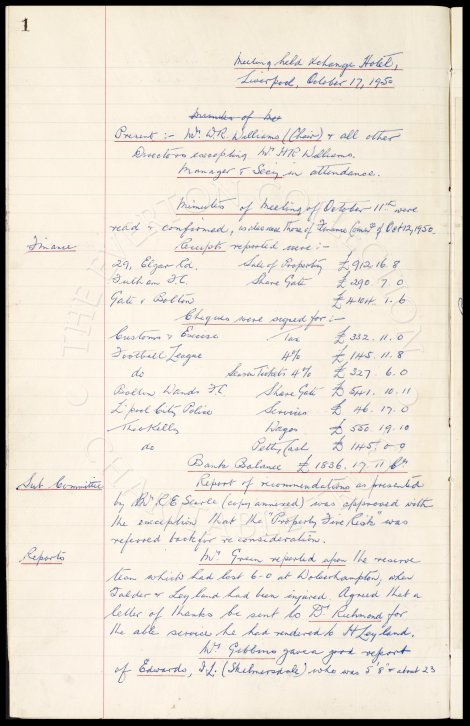 1
Meeting held Xchange Hotel,
Liverpool, October 17, 1950
Minutes of Mee
Present :- Mr W.R. Williams (Chair) & all other
Directors excepting Mr H.R. Williams.
Manager & Secy in attendance.
Minutes of Meeting of October 11th were
read & confirmed, as also were those of Finance Comtt of Oct 12, 1950.
Finance Receipts reported were :-
29, Elgar Rd. Sale of Property £912. 16. 8
Fulham F.C. Share Gate £290. 7. 0
Gate v Bolton £4104. 1. 6
Cheques were signed for :-
Customs & Excise Tax £332. 11. 0
Football League 4% £145. 11. 8
do Season Tickets 4% £327. 6. 0
Bolton Wands F.C. Share Gate £541. 10. 11
L'pool City Police Services £46. 17. 0
Theo Kelly Wages £550. 19. 10
do Petty Cash £145. 0. 0
Bank Balance £1836. 17. 11 Cr
Sub Committee Report of recommendations as presented
by Mr R.E. Searle (copy annexed) was approved with
the exception that the "Property Fire Risk" was
referred back for reconsideration.
Reports Mr Green reported upon the reserve
team which had lost 6-0 at Wolverhampton, when
Falder & Leyland had been injured. Agreed that a
letter of thanks be sent to Dr Richmond for
the able services he had rendered to H Leyland.
Mr Gibbins gave a good report
of Edwards, I.L. (Skelmersdale) who was 5' 8" & about 23